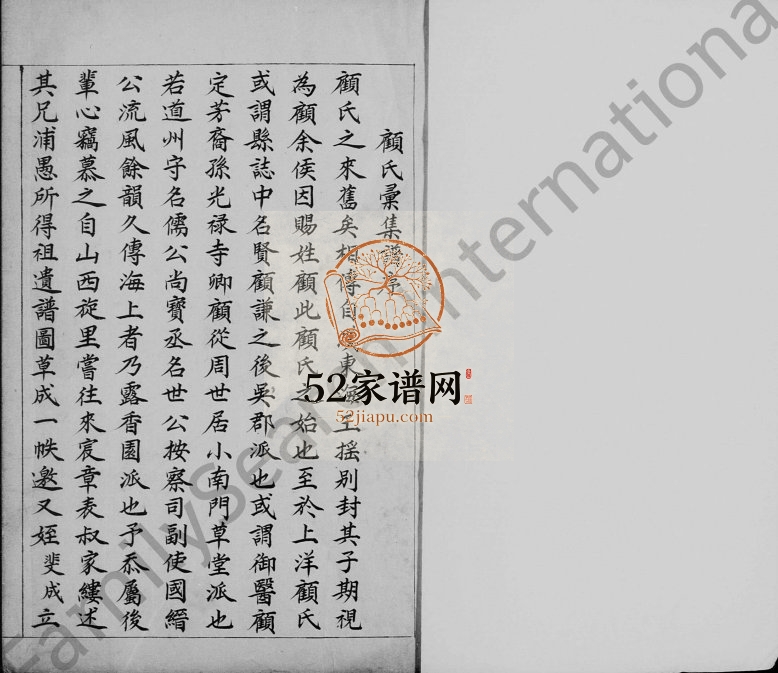 顧氏彙集譜序
顧氏之來舊矣相傳自東海王搖別封其子期視
為顧余侯因賜姓顧此顧氏之始也至於上洋顧氏
或謂縣誌中名賢顧謙之後吳郡派也或謂御醫顧
定芳裔孫光禄寺卿顧從周世居小南門草堂派也
若道州守名儒公尚寶丞名世公按察司副使國縉
公流風餘韻久傳海上者乃露香園派也予忝屬後
輩心竊慕之自山西旋里嘗往來宸章表叔家縷述
其兄浦愚所得祖遺譜圖草成一帙邀又姪斐成立
52家谱网
52jiapu.com
FamilySearch International